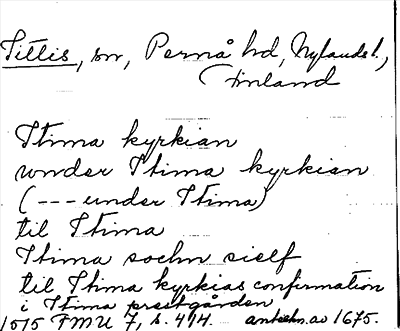 Littis, sn, Pernå hd, Nylands l.,
Finland
Itima kyrkian
under Itima kyrkian
(--- under Itima)
til Itima
Itima sochn sielf
til Itima kyrkias confirmation
i Itima prestgården
1515 FMU 7, s. 414. anteckn. av 1675.